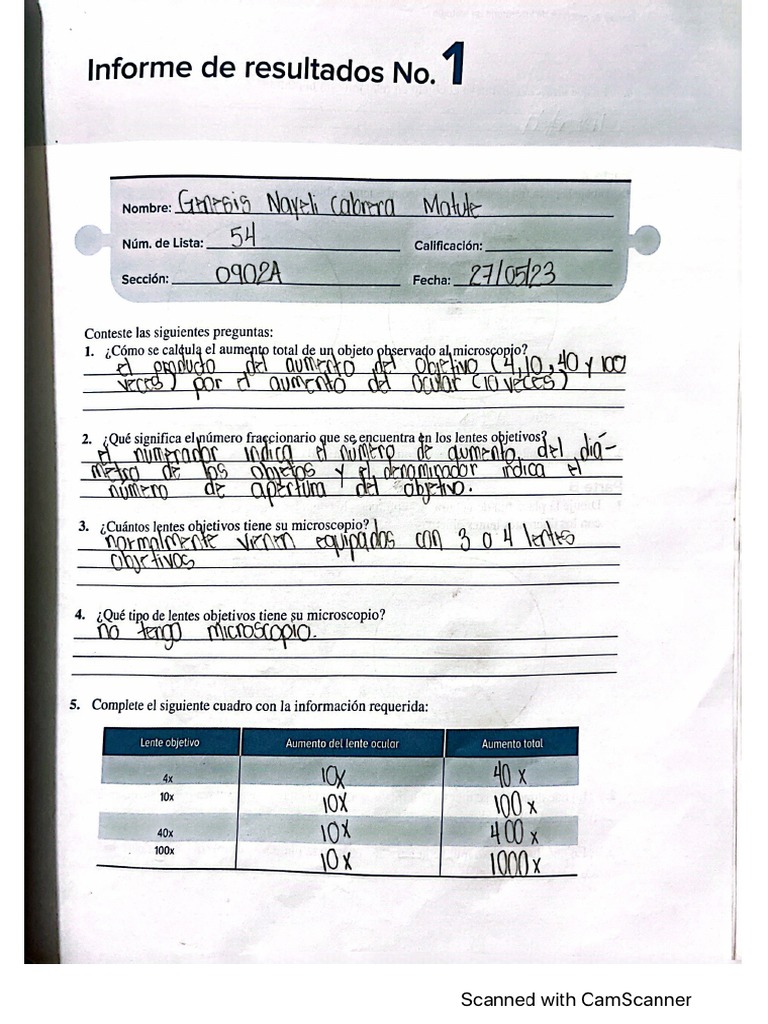 Informe de resultados No. 1
Nombre: Genesis Nayeli Cabrera Matute
Núm. de Lista: 54 Calificación:
Sección: 0902A Fecha: 27/05/23
Conteste las siguientes preguntas:
1. ¿Cómo se calcula el aumento total de un objeto observado al microscopio?
el producto del aumento del objetivo (4, 10, 40 y 100
veces) por el aumento del ocular (10 veces)
2. ¿Qué significa el número fraccionario que se encuentra en los lentes objetivos?
el numerador indica el número de aumento del diá-
metro de los objetos y el denominador indica el
número de apertura del objetivo.
3. ¿Cuántos lentes objetivos tiene su microscopio?
normalmente vienen equipados con 3 o 4 lentes
objetivos
4. ¿Qué tipo de lentes objetivos tiene su microscopio?
no tengo microscopio.
5. Complete el siguiente cuadro con la información requerida:
Lente objetivo Aumento del lente ocular Aumento total
4x 10x 40x
10x 10x 100x
40x 10x 400x
100x 10x 1000x
Scanned with CamScanner